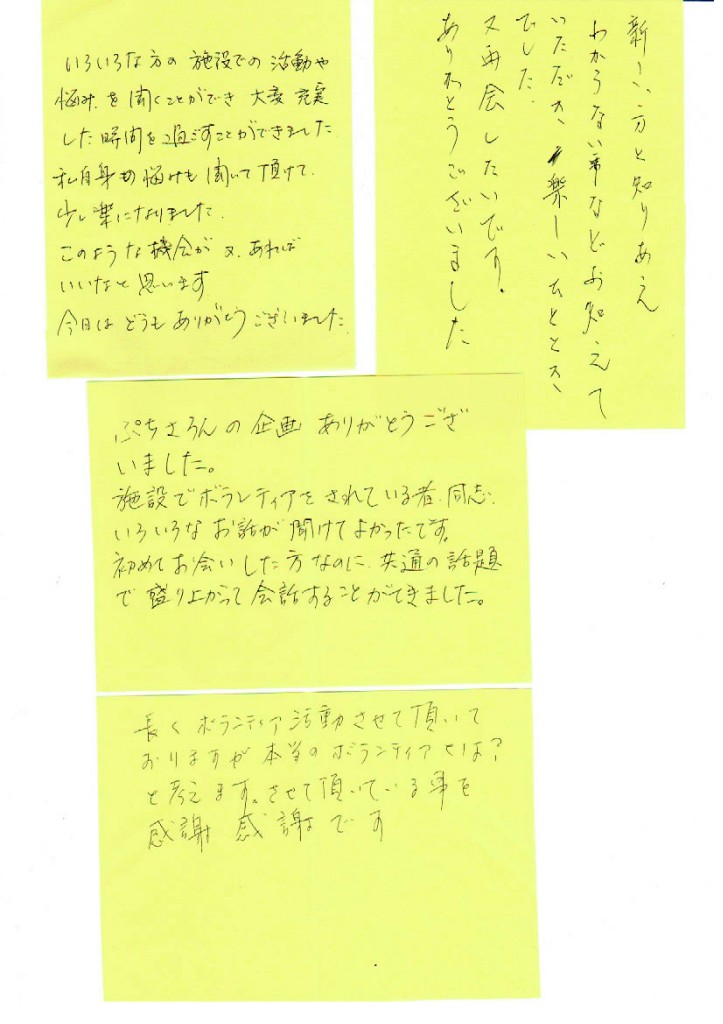 いろいろな方の施設での活動や
悩みを聞くことができ 大変 充実
した時間を過ごすことができました
私自身の悩みも聞いて頂けて、
少し楽になりました。
このような機会が又、あれば
いいなと思います
今日は どうも ありがとうございました。
新しい方と知りあえ
わからない事などお知えて
いただき、楽しいひととき
でした。
又再会したいです。
ありがとうございました
ぷちさろんの企画 ありがとうござ
いました。
施設でボランティアをされている者、同志、
いろいろなお話が聞けてよかったです。
初めてお会いした方なのに、共通の話題
で盛り上がって会話することができました。
長くボランティア活動させて頂いて
おりますが本当のボランティアとは?
と考えます。させて頂いている事を
感謝 感謝です